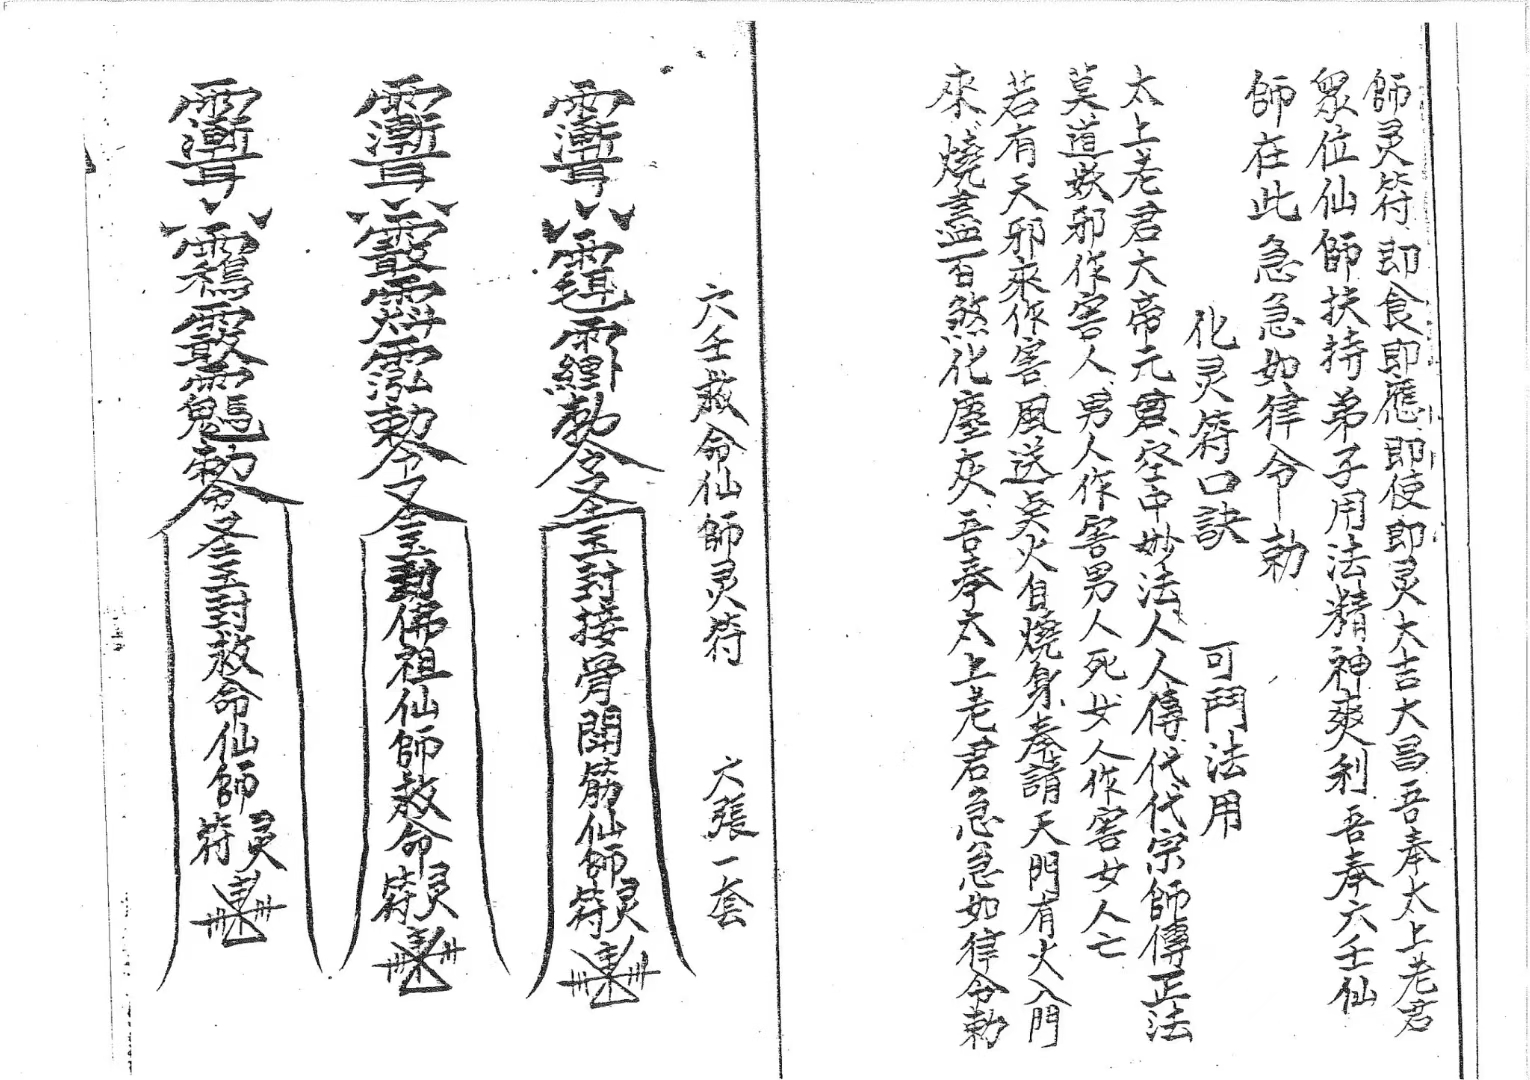 師灵符即食即應即使即灵大吉大昌吾奉太上老君
眾位仙師扶持弟子用法精神爽利吾奉六壬仙
師在此急急如律令勅
化灵符口訣 可鬥法用
太上老君大帝元君空中妙法人人傳代代宗師傳正法
莫道妖邪作害人男人作害男人死女人作害女人亡
若有天邪來作害風送炎火自燒身奉請天門有火入門
來燒盡百煞化塵灰吾奉太上老君急急如律令勅
六壬救命仙師灵符 六張一套
勅令 玉封接骨開筋仙師灵符
勅令 玉封佛祖仙師救命灵符
勅令 玉封救命仙師灵符